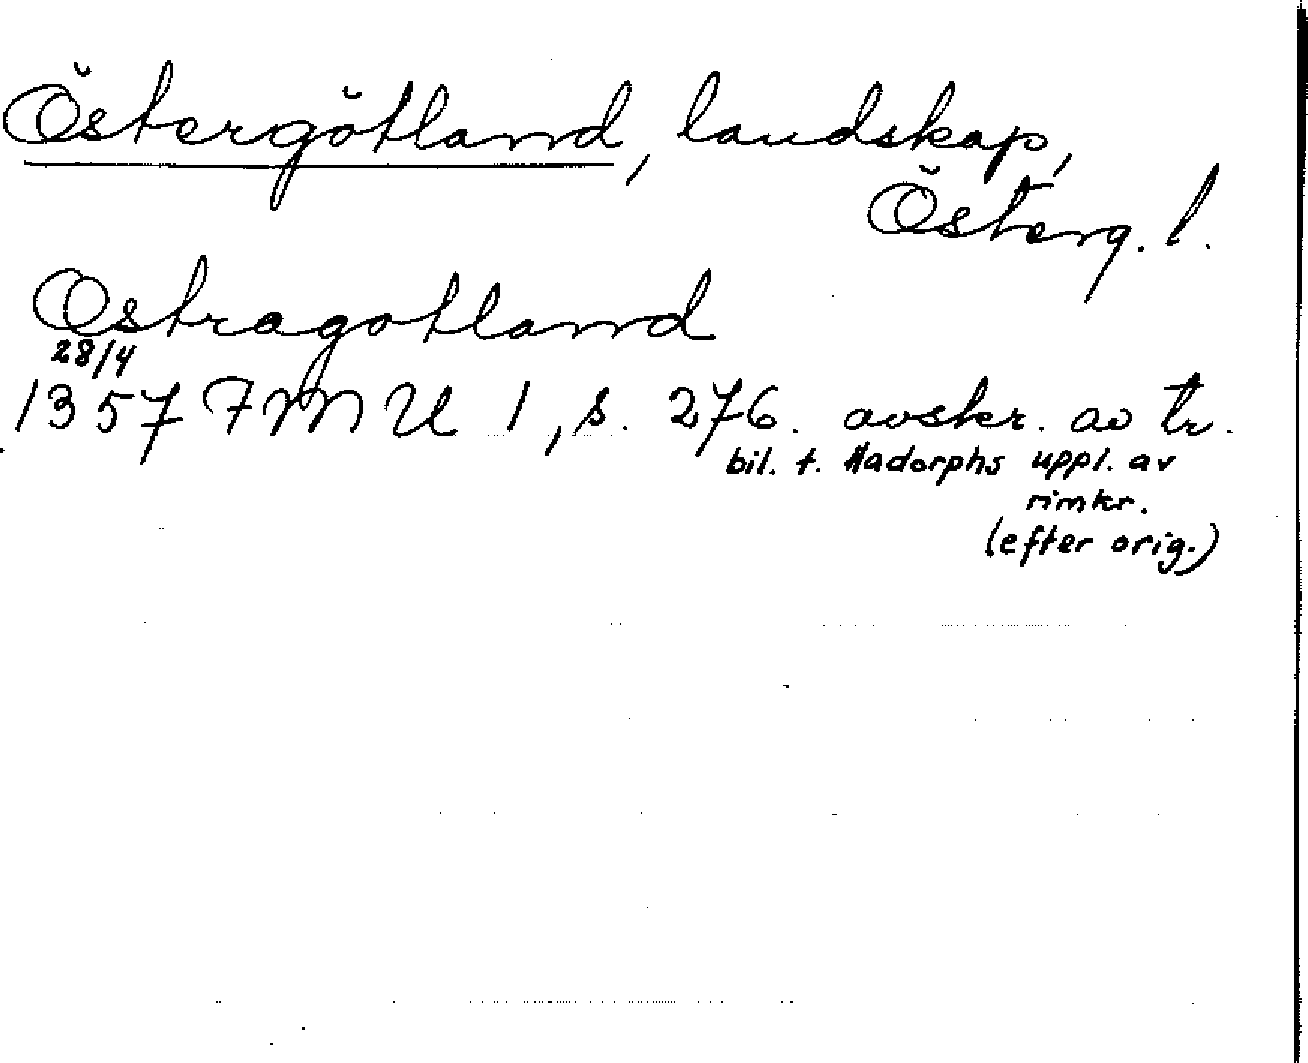 Östergötland, landskap,
Österg. l.
Ostragotland
28/4
1357 FMU 1, s. 276. avskr. av tr.
bil. t. Hadorphs uppl. av
rimkr.
(efter orig.)